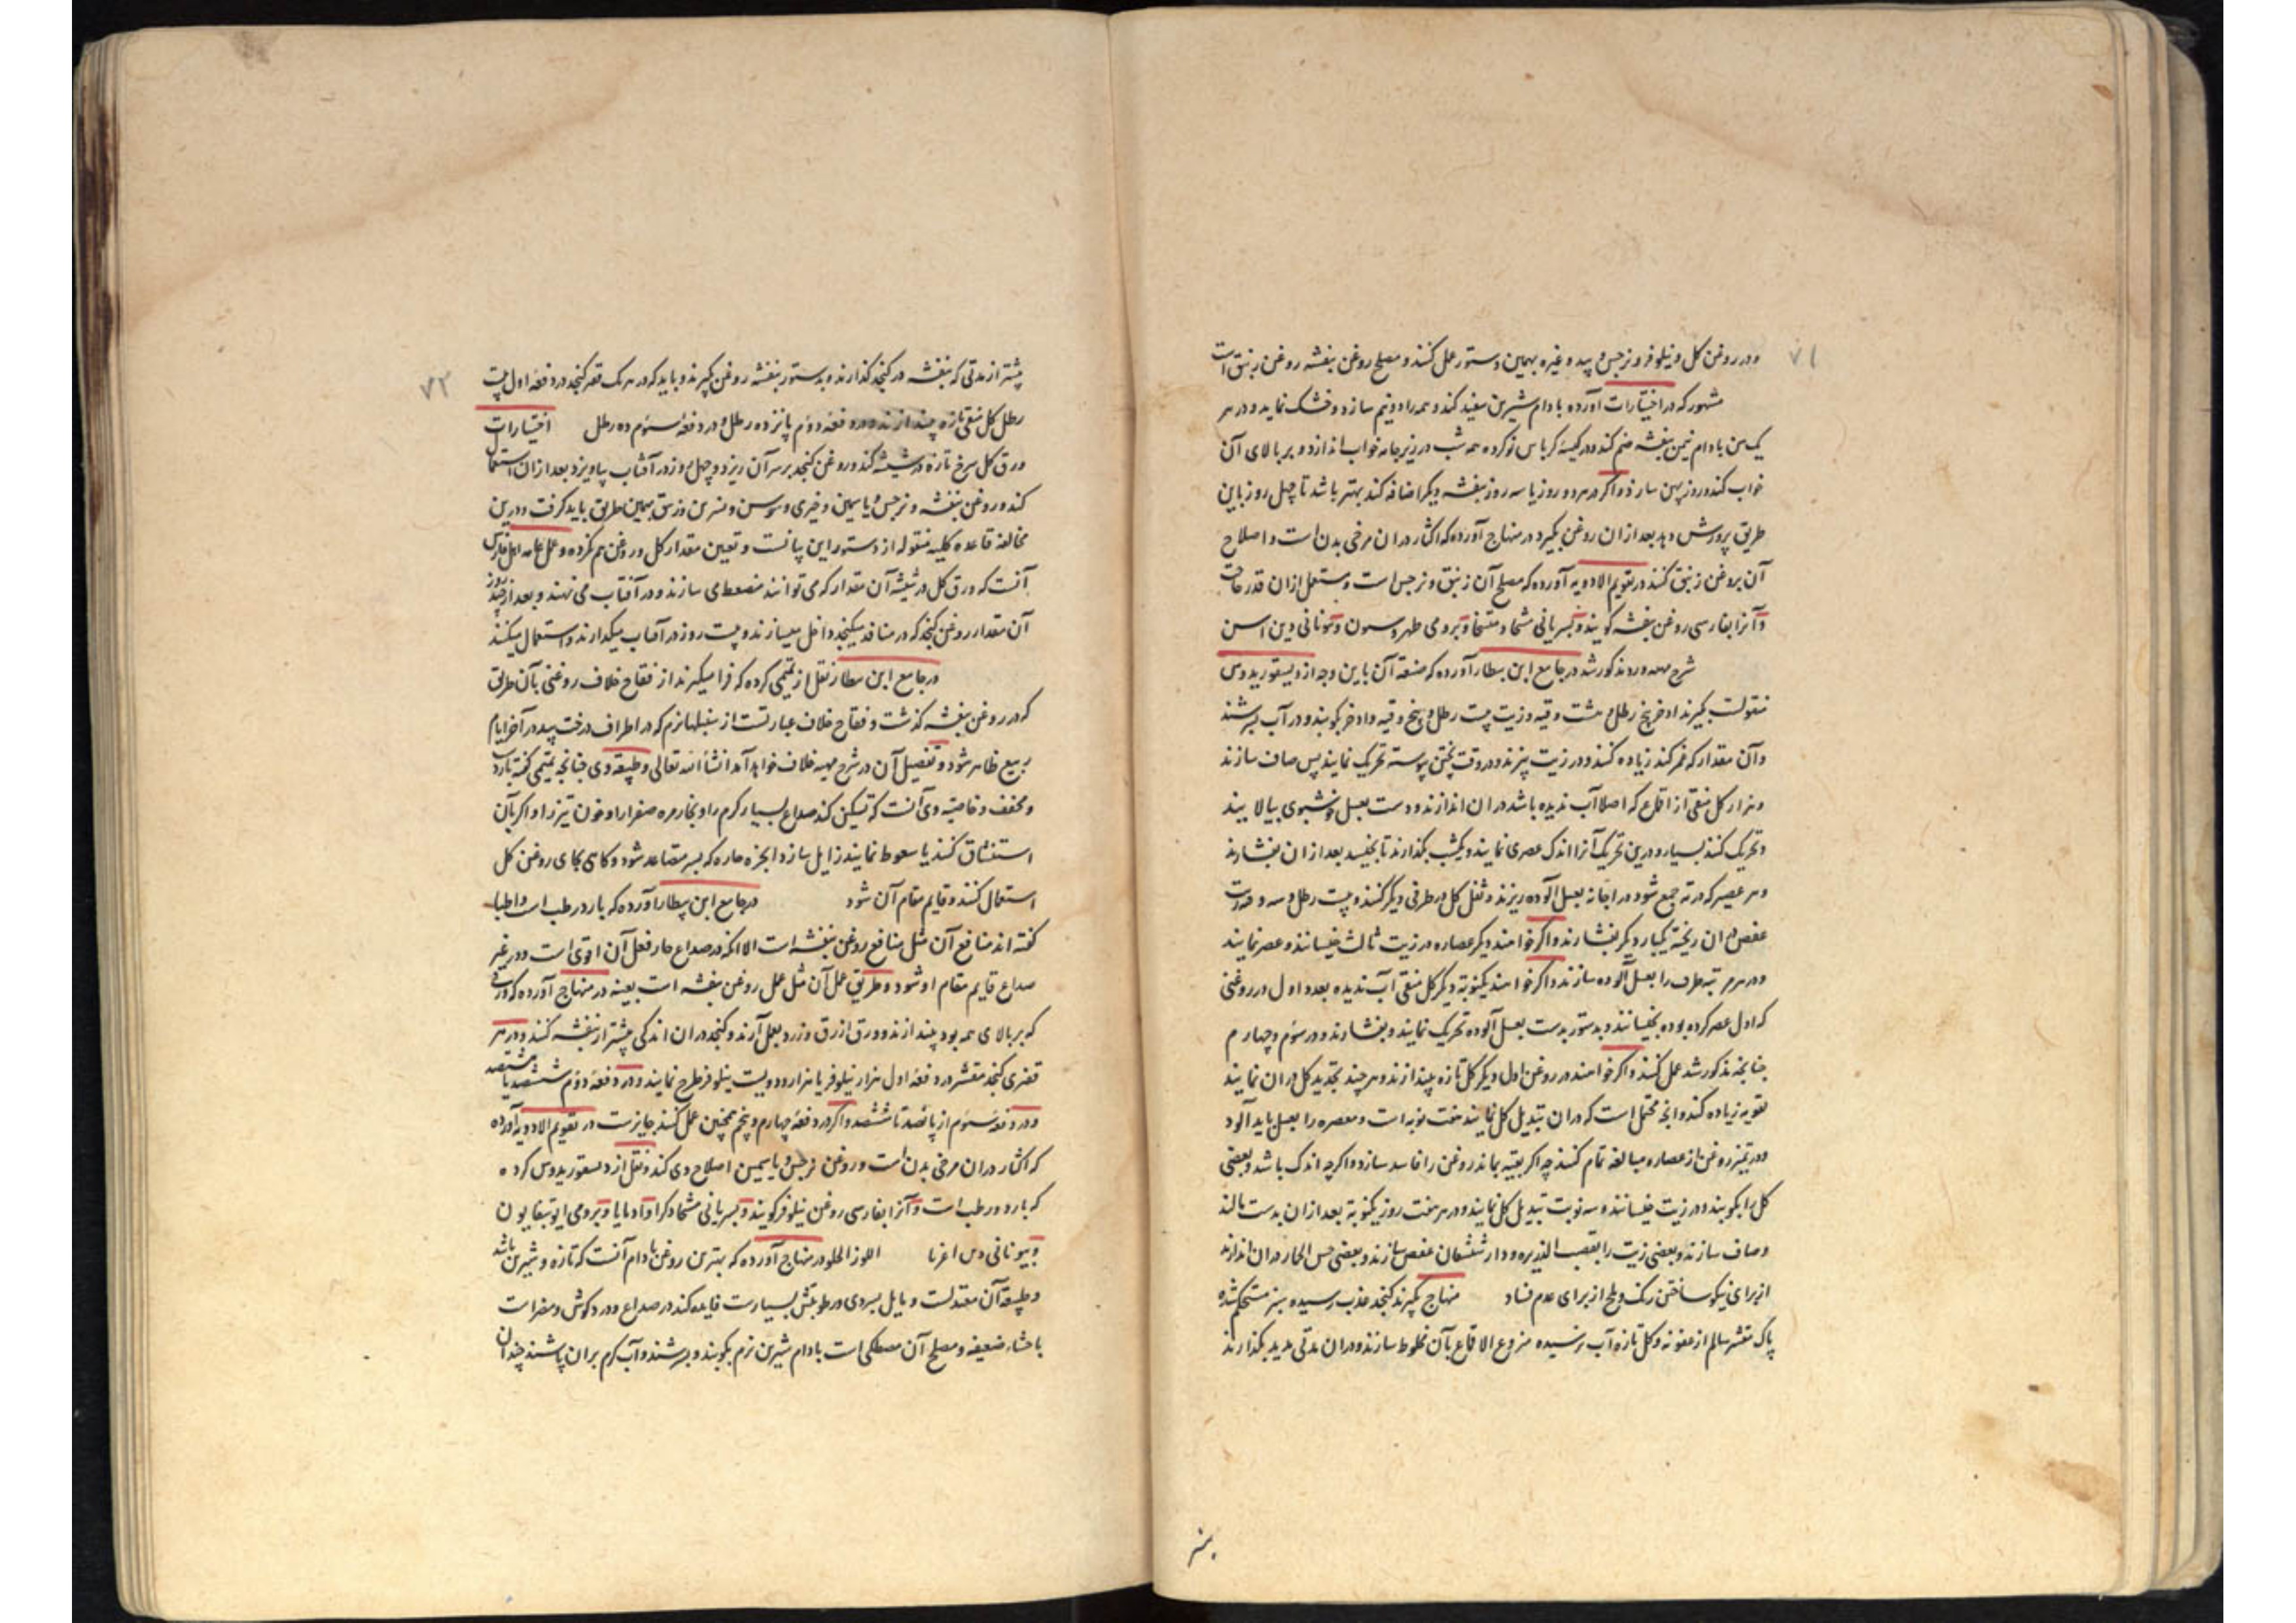 ۷۱
و در روغن کل و نیلوفر و نرجس و بید و غیره بهمین دستور عمل کنند و مصلح روغن بنفشه روغن زنبق است
مشهور که در اختیارات آورده بادام شیرین سفید کند و همه را دو نیم سازد و خشک نماید و در هر
یک من بادام نیمن بنفشه ضم کند و در کیسهٔ کرباس نو کرده همه شب در زیر جامه خواب اندازد و بر بالای آن
خواب کند و روز پهن سازد و اکر در هر دو روز یا سه روز بنفشه دیکر اضافه کند بهتر باشد تا چهل روز باین
طریق پرورش دهد بعد از ان روغن بکیرد در منهاج آورده که اکثار در ان مرخی بدن است و اصلاح
آن بروغن زنبق کنند در تقویم الادویه آورده که مصلح آن زنبق و نرجس است و مستعمل از ان قدر حاجت
و آنرا بفارسی روغن بنفشه کویند و بسریانی مشحا و برومی و یونانی دین اسن
شرح مهمه در مذکور شد در جامع ابن بیطار آورده که صنعة آن باین وجه از دیسقوریدوس
منقولست بکیرند اذخر پنج رطل و هشت وقیه و زیت بیست رطل و پنج وقیه و اذخر بکوبند و در آب بسرشند
و آن مقدار که غمر کند زیاده کنند و در زیت پزند و در وقت پختن پیوسته تحریک نمایند پس صاف سازند
و هزار کل منقی از اقماع که اصلا آب ندیده باشد در ان اندازند و دست بعسل خوشبوی بیالایند
و تحریک کنند بسیار و درین تحریک آنرا اندک عصری نمایند و یکشب بکذارند تا بخیسد بعد از ان بفشارند
و هر عصیر که در ته جمع شود در اجانه بعسل آلوده ریزند و ثفل کل در ظرفی دیکر کنند و بیست رطل و سه وقیه زیت
عفص در ان ریخته یکبار دیکر بفشارند و اکر خواهند دیکر عصاره در زیت ثالث خیسانند و عصر نمایند
و در هر مرتبه ظرف را بعسل آلوده سازند و اکر خواهند یکنوبة دیکر کل منقی آب ندیده بعدد اول در روغنی
که اول عصر کرده بوده بخیسانند و بدستور بدست بعسل آلوده تحریک نمایند و بفشارند و در سوم و چهارم
چنانچه مذکور شد عمل کنند و اکر خواهند در روغن اول دیکر کل تازه بیندازند و هر چند تجدید کل در ان نمایند
تقویه زیاده کند و انچه محتمل است که در ان تبدیل کل نمایند هفت نوبه است و معصره را بعسل باید آلود
و در تمییز روغن از عصاره مبالغه تمام کنند چه اکر بقیه بماند روغن را فاسد سازد و اکرچه اندک باشد و بعضی
کل را بکوبند و در زیت خیسانند و سه نوبت تبدیل کل نمایند و در هر هفت روز یکنوبة بعد از ان بدست مالند
و صاف سازند و بعضی زیت را بقصب الذریره و دار شیشعان عفص سازند و بعضی خس الحمار در ان اندازند
از برای نیکو ساختن رنک و ملح از برای عدم فساد منهاج بکیرند کنجد عذب رسیده سبز مستحکم شده
پاک مقشر سالم از عفونه و کل تازه آب نرسیده منزوع الاقماع بآن مخلوط سازند و در ان مدتی مدید بکذارند
۷۲
بیشتر از مدتی که بنفشه در کنجد کذارند و بدستور بنفشه روغن بکیرند و باید که در هر یک قفیز کنجد در دفعهٔ اول بیست
رطل کل منقی تازه بیندازند و در دفعهٔ دوم پانزده رطل و در دفعهٔ سوم ده رطل اختیارات
ورق کل سرخ تازه در شیشه کند و روغن کنجد بر سر آن ریزد و چهل روز در آفتاب بیاویزد بعد از ان استعمال
کند و روغن بنفشه و نرجس و یاسمین و خیری و سوسن و نسرین و زنبق بهمین طریق باید کرفت و درین
مخالفة قاعده کلیه منقوله از دستور این بیانست و تعیین مقدار کل و روغن هم نکرده و عمل عامه اهل فارس
آنست که ورق کل در شیشه آن مقدار که می توانند منضغط می سازند و در آفتاب می نهند و بعد از چند روز
آن مقدار روغن کنجد که در منافذ میکنجد داخل میسازند و بیست روز در آفتاب میکذارند و استعمال میکنند
در جامع ابن بیطار نقل از تمیمی کرده که فرا میکیرند از فقاح خلاف روغنی بآن طریق
که در روغن بنفشه کذشت و فقاح خلاف عبارتست از سنبلهای نرم که در اطراف درخت بید در آخر ایام
ربیع ظاهر شود و تفصیل آن در شرح مهیه خلاف خواهد آمد انشاء الله تعالی و طبیعة وی چنانچه تمیمی کفته بارد
و مجفف و خاصیة وی آنست که تسکین کند صداع بسیار کرم را و بخار مره صفرا را و خون تیز را و اکر بآن
استنشاق کنند یا سعوط نمایند زایل سازد ابخره حاره که بسر متصاعد شود و کاهی بجای روغن کل
استعمال کنند و قایم مقام آن شود در جامع ابن بیطار آورده که بارد رطب است و اطبا
کفته اند منافع آن مثل منافع روغن بنفشه است الا انکه در صداع حار فعل آن اقوی است و در غیر
صداع قایم مقام او شود و طریق عمل آن مثل عمل روغن بنفشه است بعینه در منهاج آورده که ورقی
که بر بالای همه بود بیندازند و ورق ازرق و زرد بعمل آرند و کنجد در ان اندکی بیشتر از بنفشه کنند و در هر
قفیزی کنجد مقشر در دفعهٔ اول هزار نیلوفر یا هزار و دویست نیلوفر طرح نمایند و در دفعهٔ دوم ششصد یا هشتصد
و در دفعهٔ سوم از پانصد تا ششصد و اکر در دفعهٔ چهارم و پنجم همچنین عمل کنند جایزست در تقویم الادویه آورده
که اکثار در ان مرخی بدن است و روغن نرجس و یاسمین اصلاح وی کند و نقل از دیسقوریدوس کرده
که بارد و رطب است و آنرا بفارسی روغن نیلوفر کویند و بسریانی و برومی
و بیونانی اللوز الحلو در منهاج آورده که بهترین روغن بادام آنست که تازه و شیرین باشد
و طبیعة آن معتدلست و مایل بسردی و رطوبتش بسیارست فایده کند در صداع و درد کوش و مضر است
باحشاء ضعیفه و مصلح آن مصطکی است بادام شیرین نرم بکوبند و بسرشند و آب کرم بر ان پاشند چندان